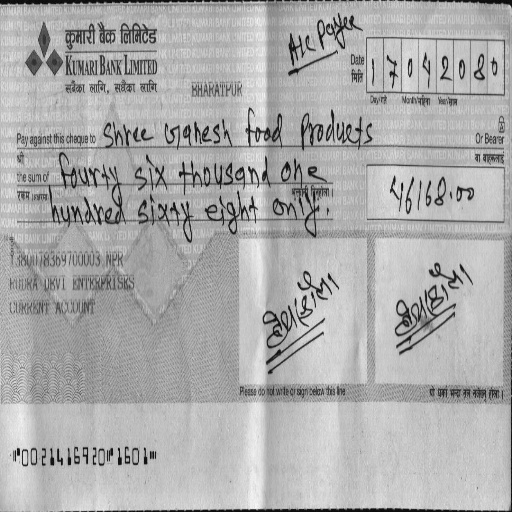 कुमारी बैंक लिमिटेड
KUMARI BANK LIMITED
सबैका लागि, सधैंका लागि
BHARATPUR
A/c Payee
Date
मिति
17042080
Day/गते Month/महिना Year/साल
Pay against this cheque to Shree Ganesh food Products
Or Bearer
श्री
वा वाहकलाई
the sum of fourty six thousand one
रकम
hundred sixty eight only.
46168.00
1380078369700003 NPR
RUDRA DEVI ENTERPRISES
CURRENT ACCOUNT
Please do not write or sign below this line
⑈0021416920⑈1601⑈